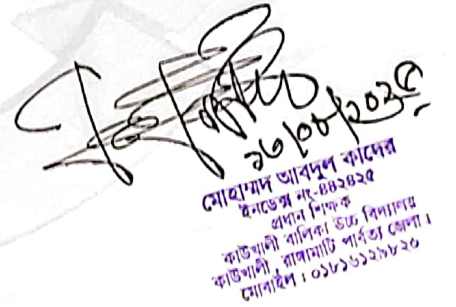 ২৬/০৮/২০২৫
মোহাম্মদ আবদুল কাদের
ইনডেক্স নং-৪৪২৪২৫
প্রধান শিক্ষক
কাউখালী বালিকা উচ্চ বিদ্যালয়
কাউখালী, রাঙ্গামাটি পার্বত্য জেলা।
মোবাইল : ০১৮১৬১২৯৮২০